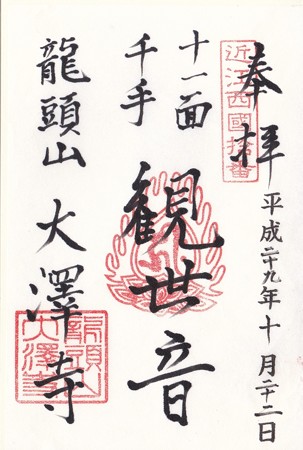 奉拝
近江西國拾番
平成二十九年十月二十二日
十一面
千手
観世音
龍頭山 大澤寺
龍頭山
大澤寺